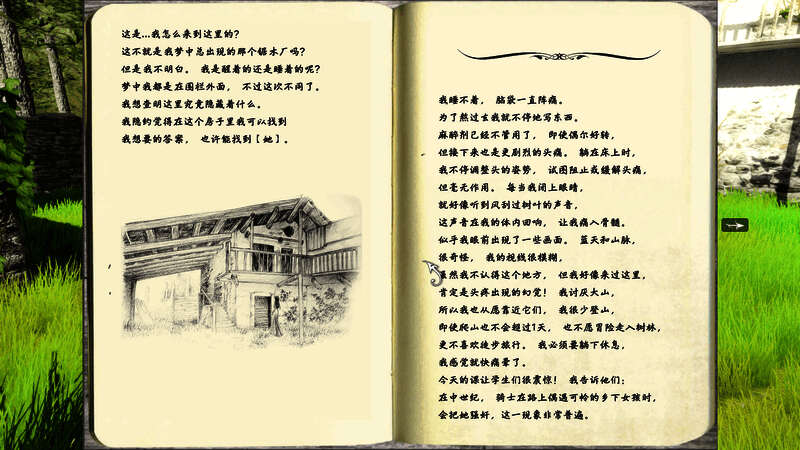 这是...我怎么来到这里的?
这不就是我梦中总出现的那个锯木厂吗?
但是我不明白。 我是醒着的还是睡着的呢?
梦中我都是在围栏外面, 不过这次不同了。
我想查明这里究竟隐藏着什么。
我隐约觉得在这个房子里我可以找到
我想要的答案, 也许能找到【她】。
我睡不着, 脑袋一直阵痛。
为了熬过去我就不停地写东西。
麻醉剂已经不管用了, 即使偶尔好转,
但接下来也是更剧烈的头痛。 躺在床上时,
我不停调整头的姿势, 试图阻止或缓解头痛,
但毫无作用。 每当我闭上眼睛,
就好像听到风刮过树叶的声音,
这声音在我的体内回响, 让我痛入骨髓。
似乎我眼前出现了一些画面。 蓝天和山脉,
很奇怪, 我的视线很模糊,
虽然我不认得这个地方, 但我好像来过这里,
肯定是头疼出现的幻觉! 我讨厌大山,
所以我也从愿靠近它们, 我很少登山,
即使爬山也不会超过1天, 也不愿冒险走入树林,
更不喜欢徒步旅行。 我必须要躺下休息,
我感觉就快痛晕了。
今天的课让学生们很震惊! 我告诉他们:
在中世纪, 骑士在路上偶遇可怜的乡下女孩时,
会把她强奸, 这一现象非常普遍。